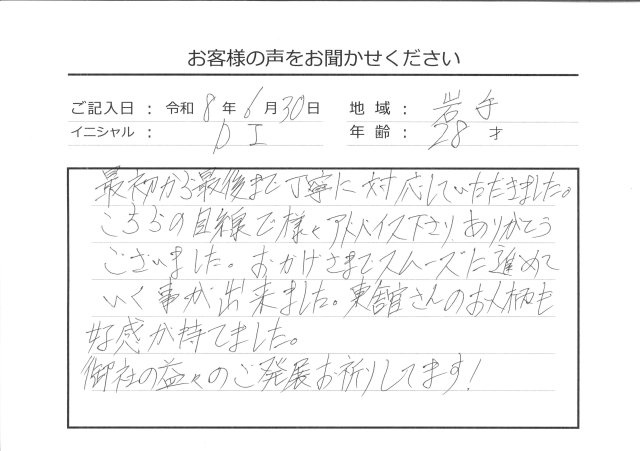 お客様の声をお聞かせください
ご記入日 : 令和 8 年 6 月 30 日 地域 : 岩手
イニシャル : D I 年齢 : 28 才
最初から最後まで丁寧に対応していただきました。
こちらの目線で様々アドバイス下さりありがとう
ございました。おかげさまでスムーズに進めて
いく事が出来ました。東舘さんのお人柄も
好感が持てました。
御社の益々のご発展お祈りしてます!